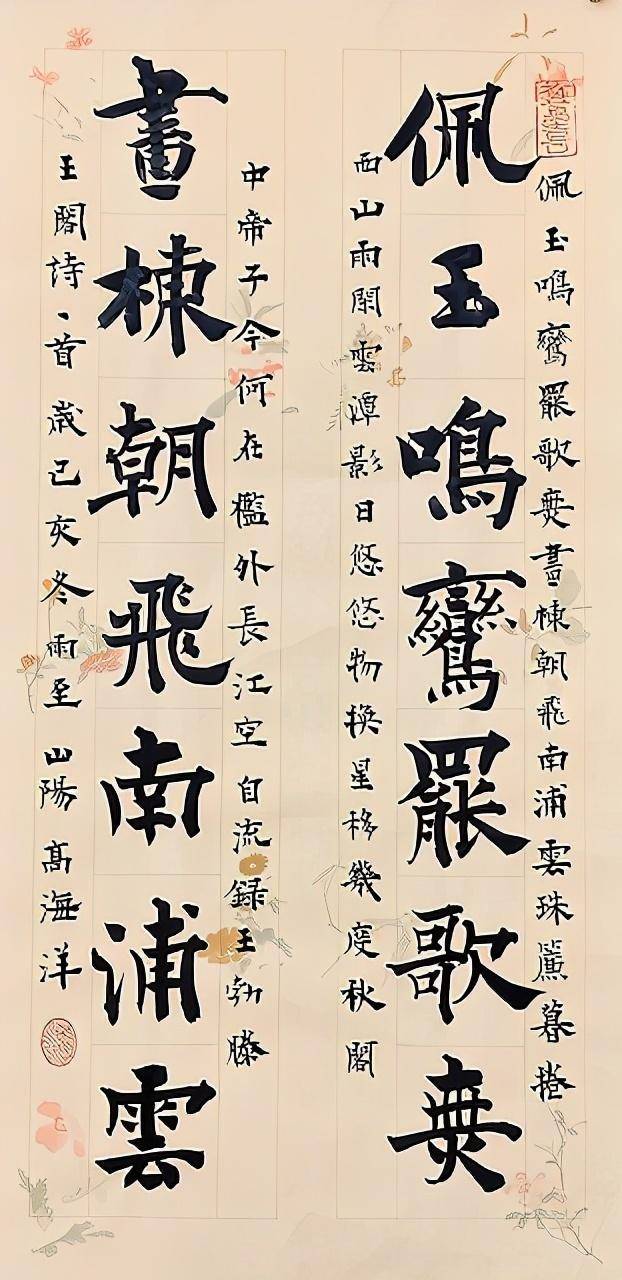 佩玉鳴鸞罷歌舞畫棟朝飛南浦雲珠簾暮捲
佩玉鳴鸞罷歌舞
西山雨閑雲潭影日悠悠物換星移幾度秋閣
中帝子今何在檻外長江空自流録王勃滕
畫棟朝飛南浦雲
王閣詩一首歲己亥冬雨至山陽髙海洋